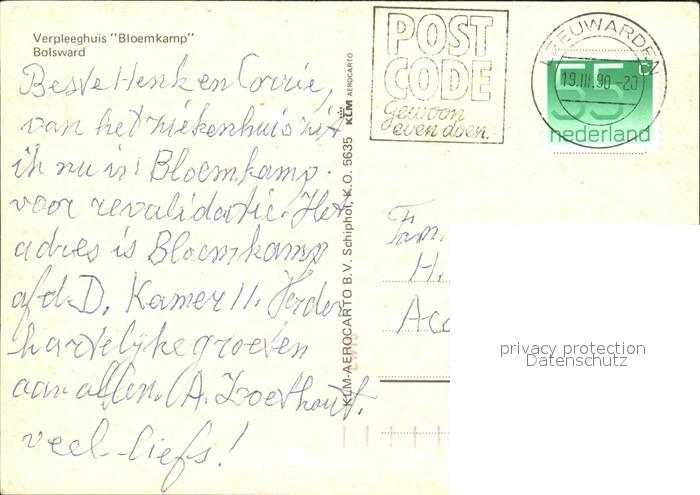 Verpleeghuis "Bloemkamp"
Bolsward
Beste Henk en Corrie,
van het ziekenhuis zit
ik nu in Bloemkamp.
voor revalidatie. Het
adres is Bloemkamp
afd. D. Kamer 11. Verder
hartelijke groeten
aan allen. A. Zoethout.
veel liefs!
KLM-AEROCARTO B.V. Schiphol, K.O. 5635 KLM AEROCARTO
POST
CODE
Gewoon
even doen.
LEEUWARDEN
19.III.90-20
55 c
nederland
Fam.
H.
privacy protection
Datenschutz